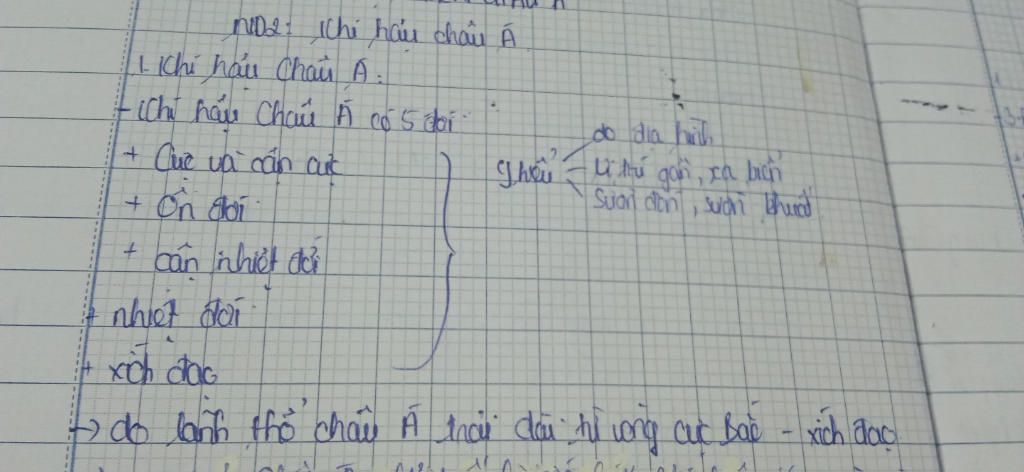 ND2: Khí hậu châu Á
1. Khí hậu Châu Á:
- Khí hậu Châu Á có 5 đới
+ Cực và cận cực
+ Ôn đới
+ cận nhiệt đới
+ nhiệt đới
+ xích đạo
do địa hình
vị trí gần, xa biển
sườn đón, sườn khuất
→ do lãnh thổ châu Á trải dài từ vòng cực Bắc - xích đạo